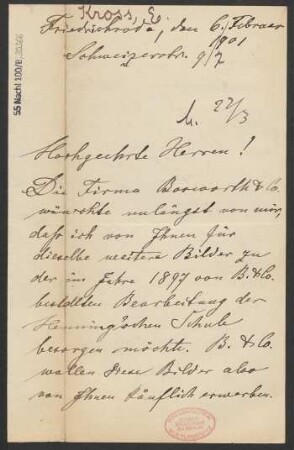 Kross, E.
Friedrichroda, den 6. Februar
1901
Schweizerstr. 9/7
55 Nachl 100/B
22/3
Hochgeehrte Herren!
Die Firma Bosworth & Co.
wünschte unlängst von mir,
daß ich von Ihnen für
dieselbe weitere Bilder zu
der im Jahre 1897 von B. & Co.
bestellten Bearbeitung der
Henning'schen Schule
besorgen möchte. B. & Co.
wollen diese Bilder also
von Ihnen käuflich erwerben.